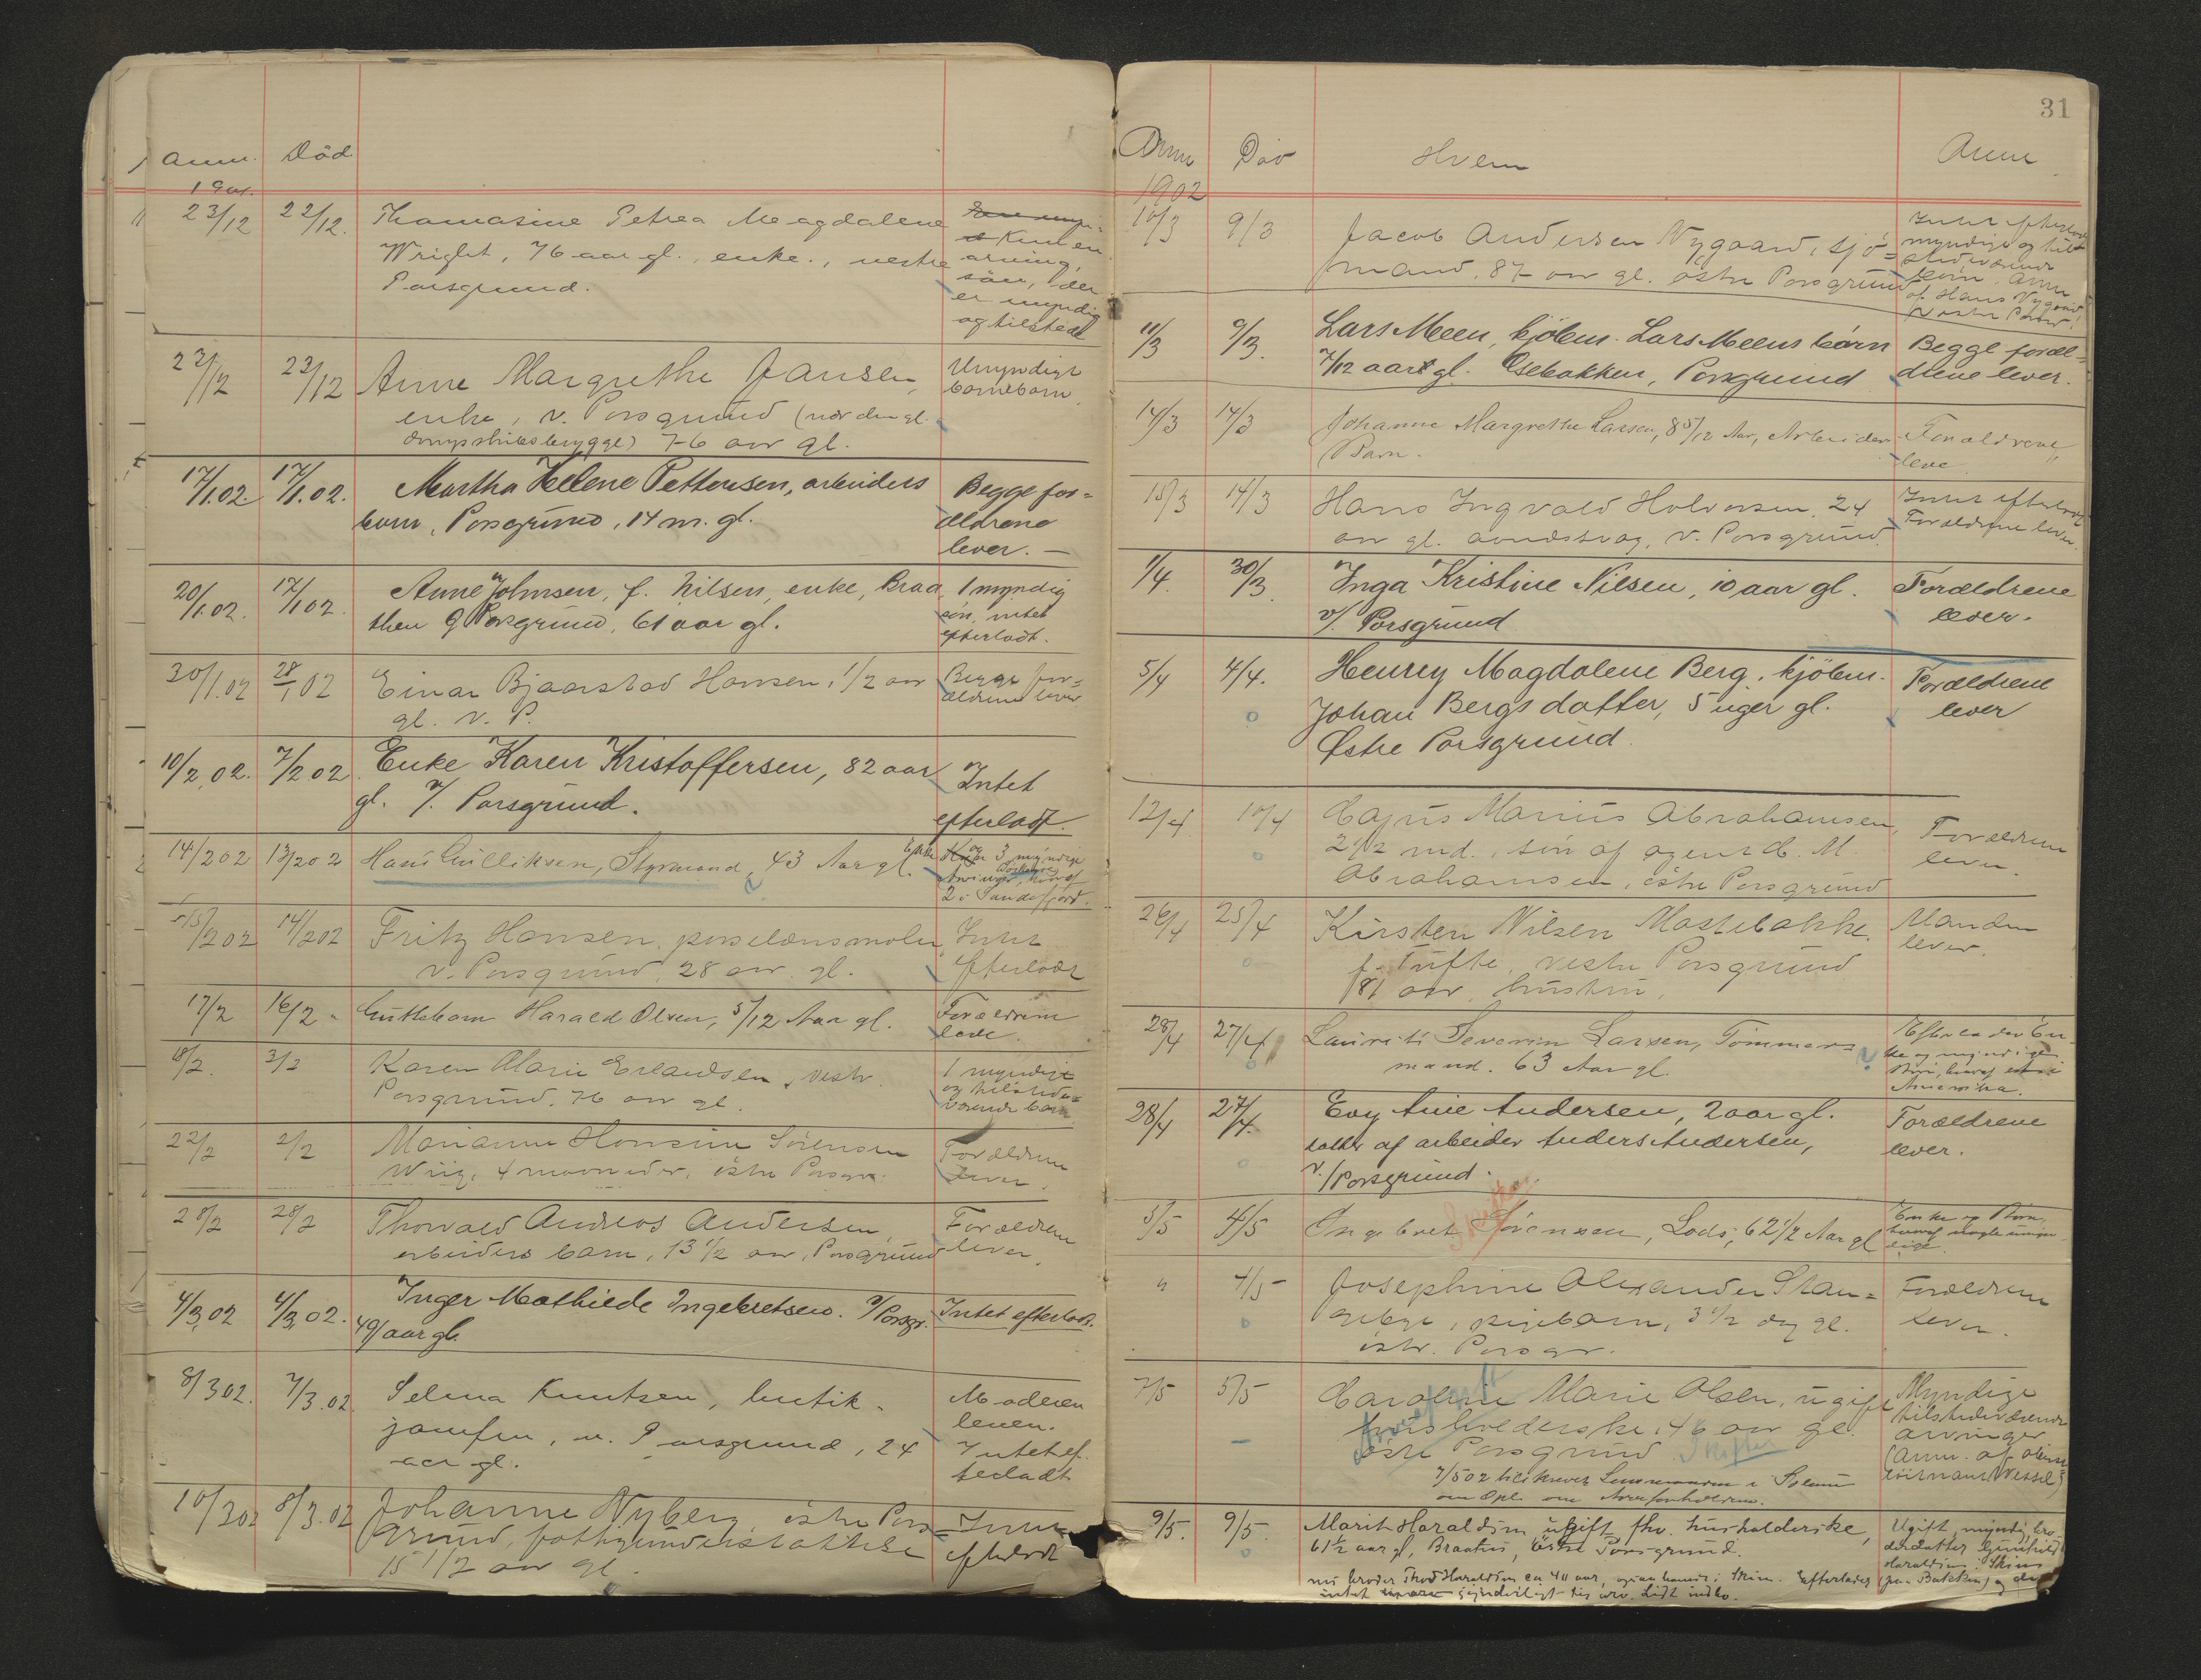 Anm. Död
1901.
23/12 22/12. Thomasine Petrea Magdalene
Wright, 76 aar gl., enke., vestre
Porsgrund.
Kun en
arving,
sön, der
er myndig
og tilstede
23/12 Anne Margrethe Jansen,
enke, v. Porsgrund (nær den gl.
dampskibsbrygge) 76 aar gl.
Umyndige
barnebarn.
17/1.02. 17/1.02. Martha Helene Pettersen, arbeiders
barn, Porsgrund, 14 m. gl.
Begge for=
ældrene
lever. —
20/1.02. 17/1.02. Anne Johnsen, f. Nilsen, enke, Braa
then Porsgrund, 61 aar gl.
1 myndig
sön, intet
efterladt.
30/1.02 28/1.02 Einar Bjaarstad Hansen, 1/2 aar
gl. v. P.
Begge for=
ældrene lever
10/2.02. 7/2 02. Enke Karen Kristoffersen, 82 aar
gl. v/. Porsgrund.
Intet
efterladt.
14/2 02 13/2 02 Hans Gulliksen, Styrmand, 43 Aar gl.
Enke
og 3 myndige
2 i Sandefjord.
15/2 02 14/2 02 Fritz Hansen, porselænsmaler
v. Porsgrund, 28 aar gl.
Intet
efterladt
17/2 16/2 Guttebarn Harald Olsen, 5/12 Aar gl.
Forældrene
leve.
18/2. 3/2 Karen Marie Erlandsen, vestr.
Porsgrund, 76 aar gl.
1 myndigt
og tilstede=
værende barn
22/2 2/2 Marianne Sörensen
4 maaneder, östre Porsgr.
Forældrene
lever.
28/2 28/2 Thorvald Andreas Andersen,
arbeiders barn, 13 1/2 aar, Porsgrund
Forældrene
lever.
4/3.02 4/3.02. Inger Mathilde Ingebretsen. v/Porsgr.
49 aar gl.
Intet efterladt.
8/3 02. 7/3.02 Selma Knutsen, butik=
jomfru, v. Porsgrund, 24
aar gl.
Moderen
lever.
Intet ef=
terladt
10/3 02 8/3.02 Johanne Nyberg östre Pors=
grund, fattigunderstöttelse
15 1/2 aar gl.
Intet
efterladt
31
Anm Död Hvem Anm
1902
10/3 9/3 Jacob Andersen Nygaard, sjö=
mand. 87 aar gl. östre Porsgrund
Intet efterladt
myndige og til=
stedeværende
börn. Anm.
af Hans Nygaard
vestre Porsgr.
11/3 9/3. Lars Meen, kjöbm. Lars Meens barn
7/12 aar gl. Osebakken, Porsgrund
Begge foræl=
drene lever.
14/3 14/3 Johanne Margrethe Larsen, 8 5/12 Aar, Arbeider
Barn.
Forældrene
leve
15/3 14/3 Hans Ingvald Halvorsen. 24
aar gl. aandssvag, v. Porsgrund.
Intet efterladt
Forældrene lever.
1/4. 30/3. Inga Kristine Nilsen, 10 aar gl.
v/. Porsgrund
Forældrene
lever.
5/4 4/4. Henrey Magdalene Berg, kjöbm.
Johan Bergs datter, 5 uger gl.
Östre Porsgrund.
Forældrene
lever
12/4 10/4 Cajus Marius Abrahamsen,
2 1/2 md., sön af agent C. M.
Abrahamsen, östre Porsgrund
Forældrene
lever.
26/4 25/4 Kirsten Nilsen Mostebakke.
f. Tufte, vestre Porsgrund
81 aar, hustru.
Manden
lever.
28/4 27/4 Laurits Severin Larsen, Tömmer=
mand. 63 Aar gl.
Efterlader En=
ke og myndige
Börn, hvoraf
Amerika.
28/4 27/4. Evy Anie Andersen, 2 aar gl.
datter af arbeider Anders Andersen,
v./Porsgrund.
Forældrene
lever.
5/5 4/5 Ingebret Sörensen, Lods, 62 1/2 Aar gl
Skifte
Enke og Börn,
hvoraf nogle umyn=
dige.
" 4/5 Josephine Alexander Stan=
gebye, pigebarn, 3 1/2 dag gl.
östr. Porsgr.
Forældrene
lever.
7/5 5/5 Caroline Marie Olsen, ugift
husholderske, 46 aar gl.
östre Porsgrund. Skifter
7/5 02 tilskrevet Lensmanden i Solum
om Opl. om Arveforholdene.
Myndige
tilstedeværende
arvinger
(Anm. af
Wessel)
9/5. 9/5. Marit Haraldsen, ugift fhv. husholderske,
61 1/2 aar gl, Braaten, Östre Porsgrund.
Ugift, myndig bro=
derdatter Gunhild
Haraldsen i Skien
(paa Bakken) og